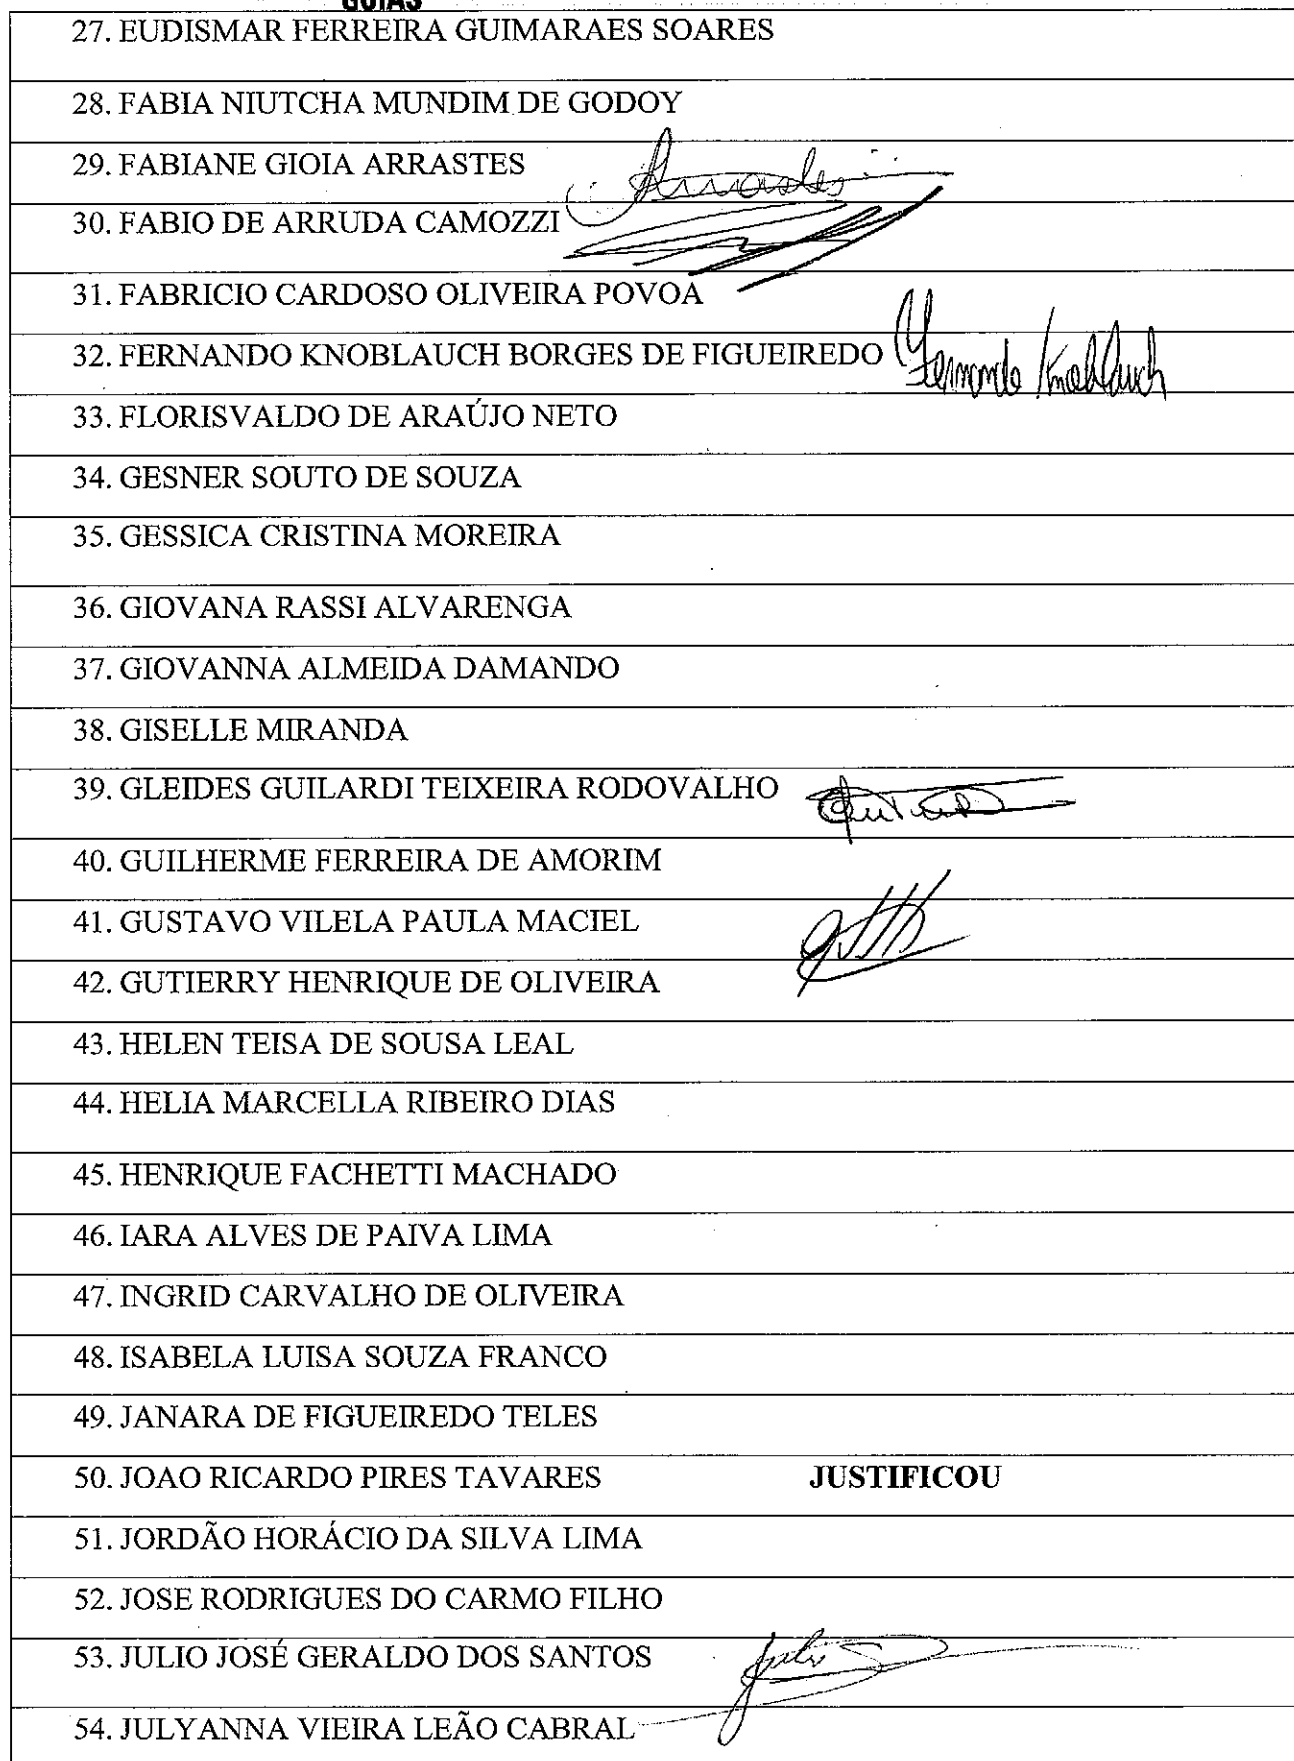 GOIÁS
27. EUDISMAR FERREIRA GUIMARAES SOARES
28. FABIA NIUTCHA MUNDIM DE GODOY
29. FABIANE GIOIA ARRASTES
30. FABIO DE ARRUDA CAMOZZI
31. FABRICIO CARDOSO OLIVEIRA POVOA
32. FERNANDO KNOBLAUCH BORGES DE FIGUEIREDO Fernando Knoblauch
33. FLORISVALDO DE ARAÚJO NETO
34. GESNER SOUTO DE SOUZA
35. GESSICA CRISTINA MOREIRA
36. GIOVANA RASSI ALVARENGA
37. GIOVANNA ALMEIDA DAMANDO
38. GISELLE MIRANDA
39. GLEIDES GUILARDI TEIXEIRA RODOVALHO
40. GUILHERME FERREIRA DE AMORIM
41. GUSTAVO VILELA PAULA MACIEL
42. GUTIERRY HENRIQUE DE OLIVEIRA
43. HELEN TEISA DE SOUSA LEAL
44. HELIA MARCELLA RIBEIRO DIAS
45. HENRIQUE FACHETTI MACHADO
46. IARA ALVES DE PAIVA LIMA
47. INGRID CARVALHO DE OLIVEIRA
48. ISABELA LUISA SOUZA FRANCO
49. JANARA DE FIGUEIREDO TELES
50. JOAO RICARDO PIRES TAVARES JUSTIFICOU
51. JORDÃO HORÁCIO DA SILVA LIMA
52. JOSE RODRIGUES DO CARMO FILHO
53. JULIO JOSÉ GERALDO DOS SANTOS
54. JULYANNA VIEIRA LEÃO CABRAL